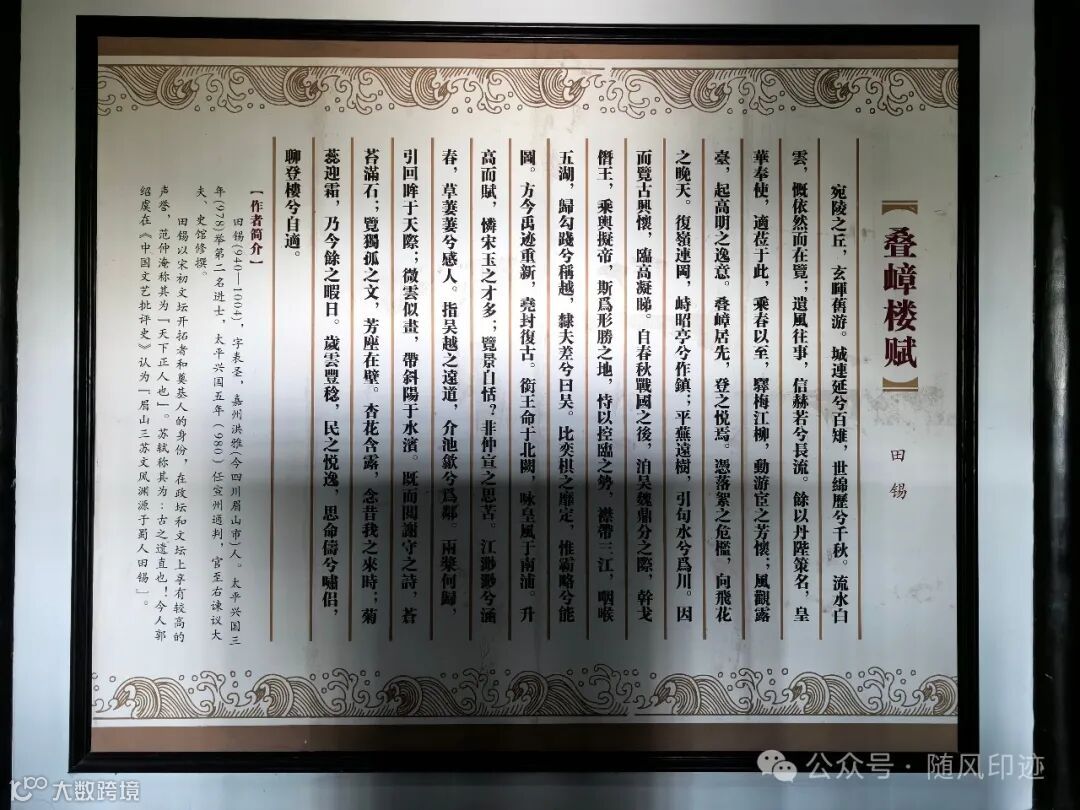 【叠嶂楼赋】
田锡
宛陵之丘，玄暉舊游。城連延兮百雉，世綿歷兮千秋。流水白
雲，慨依然而在覽；遺風往事，信赫若兮長流。餘以丹陛策名，皇
華奉使，適莅于此，乘春以至，驛梅江柳，動游宦之芳懷；風觀露
臺，起高明之逸意。叠嶂居先，登之悦焉。憑落絮之危檻，向飛花
之晚天。復嶺連岡，峙昭亭兮作鎮；平蕪遠樹，引句水兮爲川。因
而覽古興懷，臨高凝睇。自春秋戰國之後，洎吴魏鼎分之際，幹戈
僭王，乘輿擬帝，斯爲形勝之地，恃以控臨之勢，襟帶三江，咽喉
五湖，歸勾踐兮稱越，隸夫差兮曰吴。比奕棋之靡定，惟霸略兮能
圖。方今禹迹重新，堯封復古。銜王命于北闕，咏皇風于南浦。升
高而賦，憐宋玉之才多；覽景自恬？非仲宣之思苦。江渺渺兮涵
春，草萋萋兮感人。指吴越之遠道，介池歙兮爲鄰。兩槳何歸，
引回眸于天際；微雲似畫，帶斜陽于水濱。既而閲謝守之詩，蒼
苔滿石；覽獨孤之文，芳座在壁。杏花含露，念昔我之來時；菊
蕊迎霜，乃今餘之暇日。歲雲豐稔，民之悦逸，思命儔兮嘯侣，
聊登樓兮自適。
【作者简介】
田锡(940—1004)，字表圣，嘉州洪雅(今四川眉山市)人。太平兴国三
年(978)举第二名进士，太平兴国五年（980）任宣州通判，官至右谏议大
夫、史馆修撰。
田锡以宋初文坛开拓者和奠基人的身份，在政坛和文坛上享有较高的
声誉，范仲淹称其为「天下正人也」。苏轼称其为：古之遗直也！今人郭
绍虞在《中国文艺批评史》认为「眉山三苏文风渊源于蜀人田锡」。
公众号·随风印迹
100 大数跨境